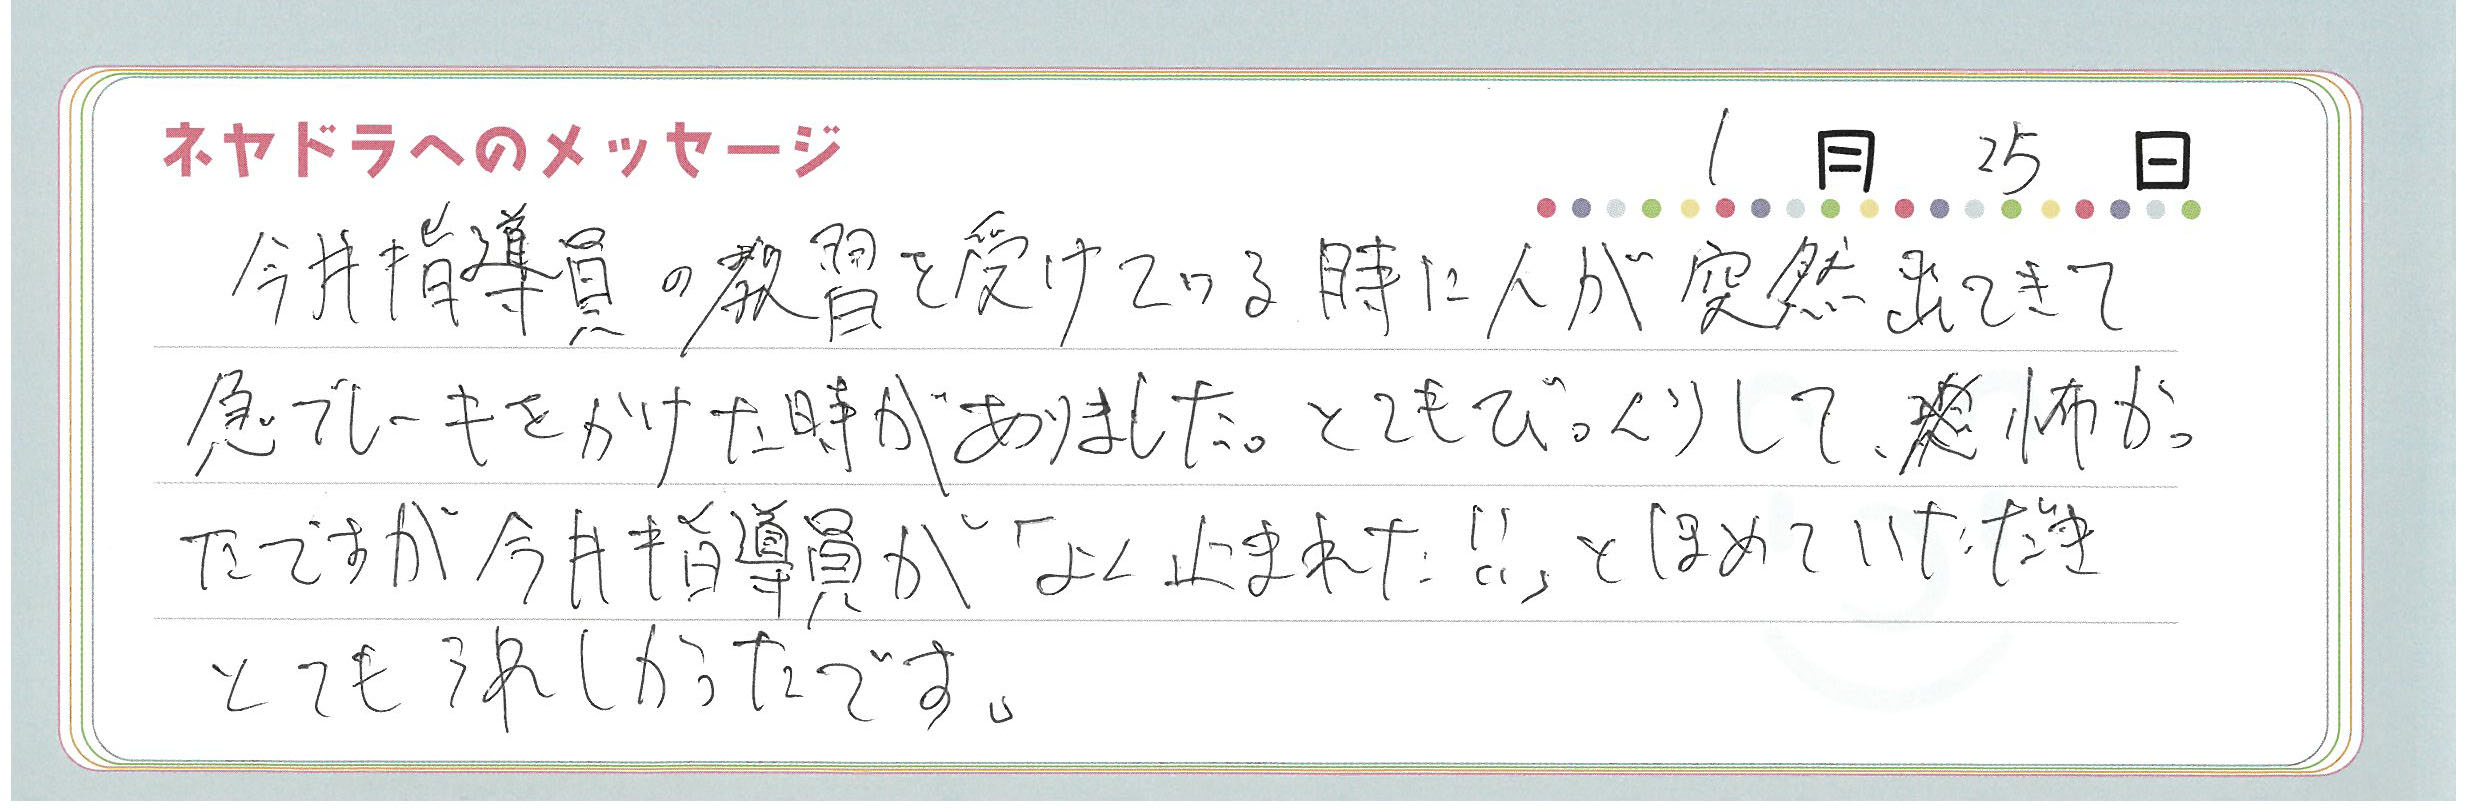 ネヤドラへのメッセージ
1月25日
今井指導員の教習を受けている時に人が突然出てきて
急ブレーキをかけた時がありました。とてもびっくりして、怖かっ
たですが今井指導員が「よく止まれた!!」とほめていただき
とてもうれしかったです。